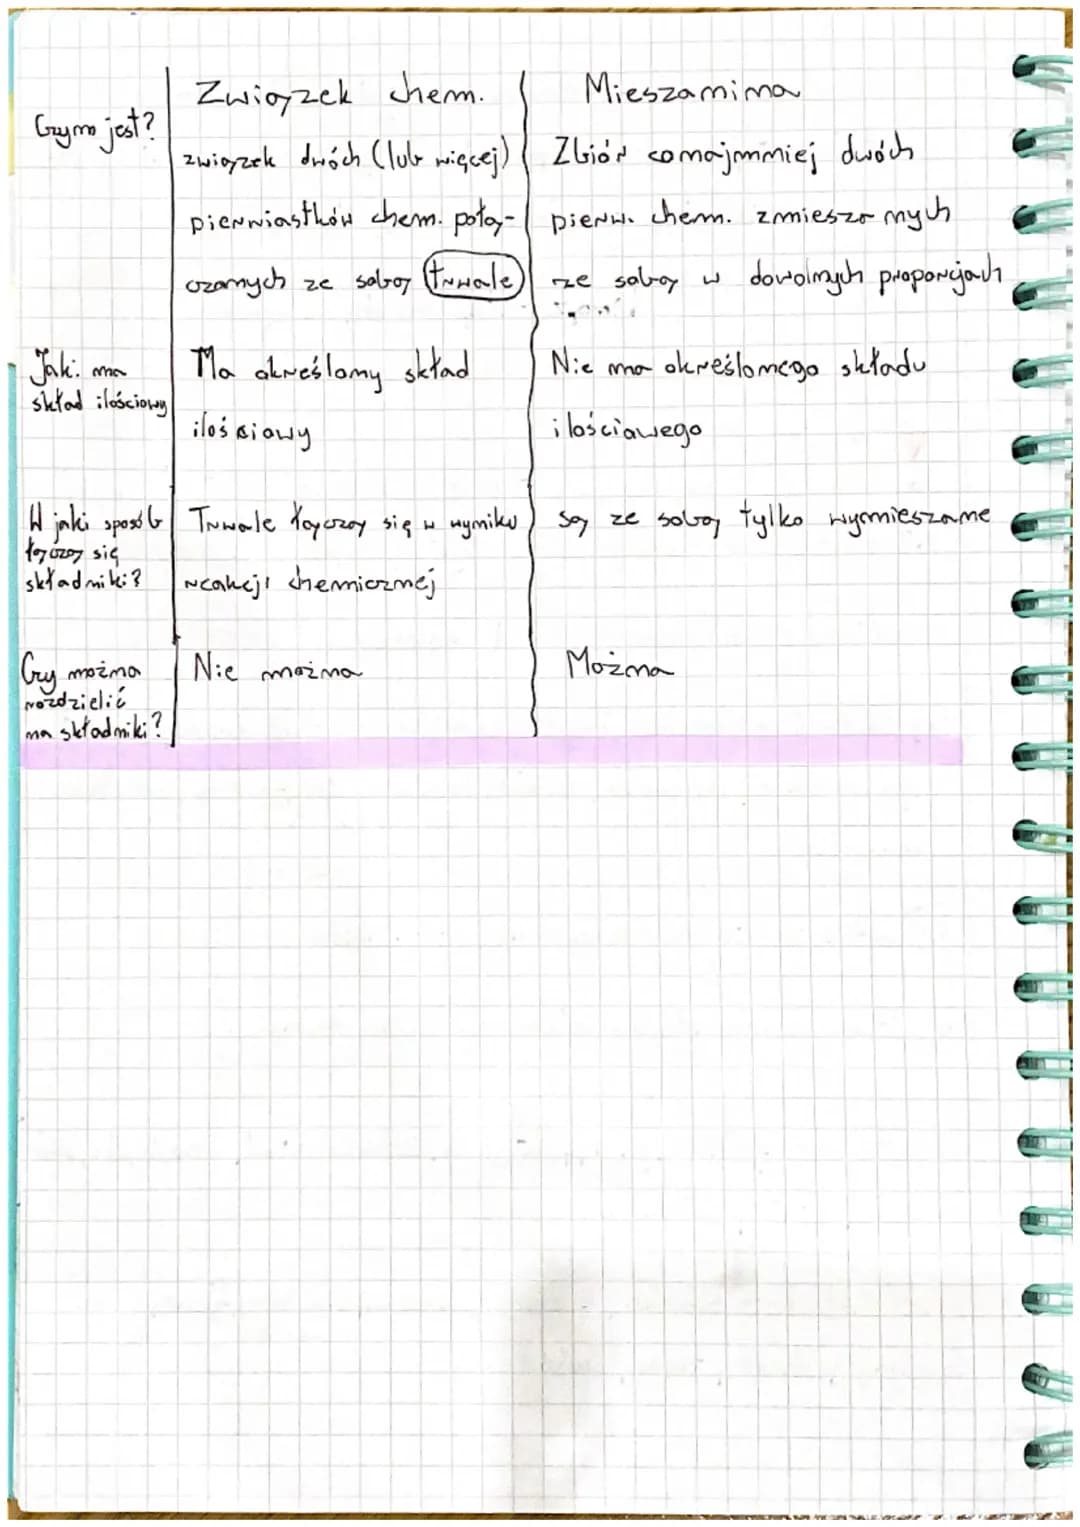 Związek chem.
Mieszanina
Czym jest?
związek dwóch (lub więcej)
pierwiastków chem. połą-
czonych ze sobą trwale
Zbiór conajmniej dwóch
pierw. chem. zmieszanych
ze sobą w dowolnych proporcjach
Jaki ma
skład ilościowy
Ma określony skład
ilościowy
Nie ma określonego składu
ilościowego
W jaki sposób
łączą się
składniki?
Trwale łączą się w wyniku
reakcji chemicznej
są ze sobą tylko wymieszane
Czy można
rozdzielić
na składniki?
Nie można
Można